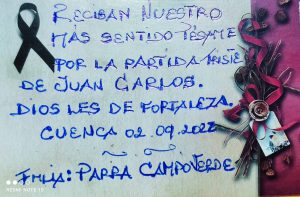 RECIBAN NUESTRO
MÁS SENTIDO PÉSAME
POR LA PARTIDA
DE JUAN CARLOS.
DIOS LES DE FORTALEZA.
CUENCA 02.09.2022
FMLIA: PARRA CAMPOVERDE
REDMI NOTE 10